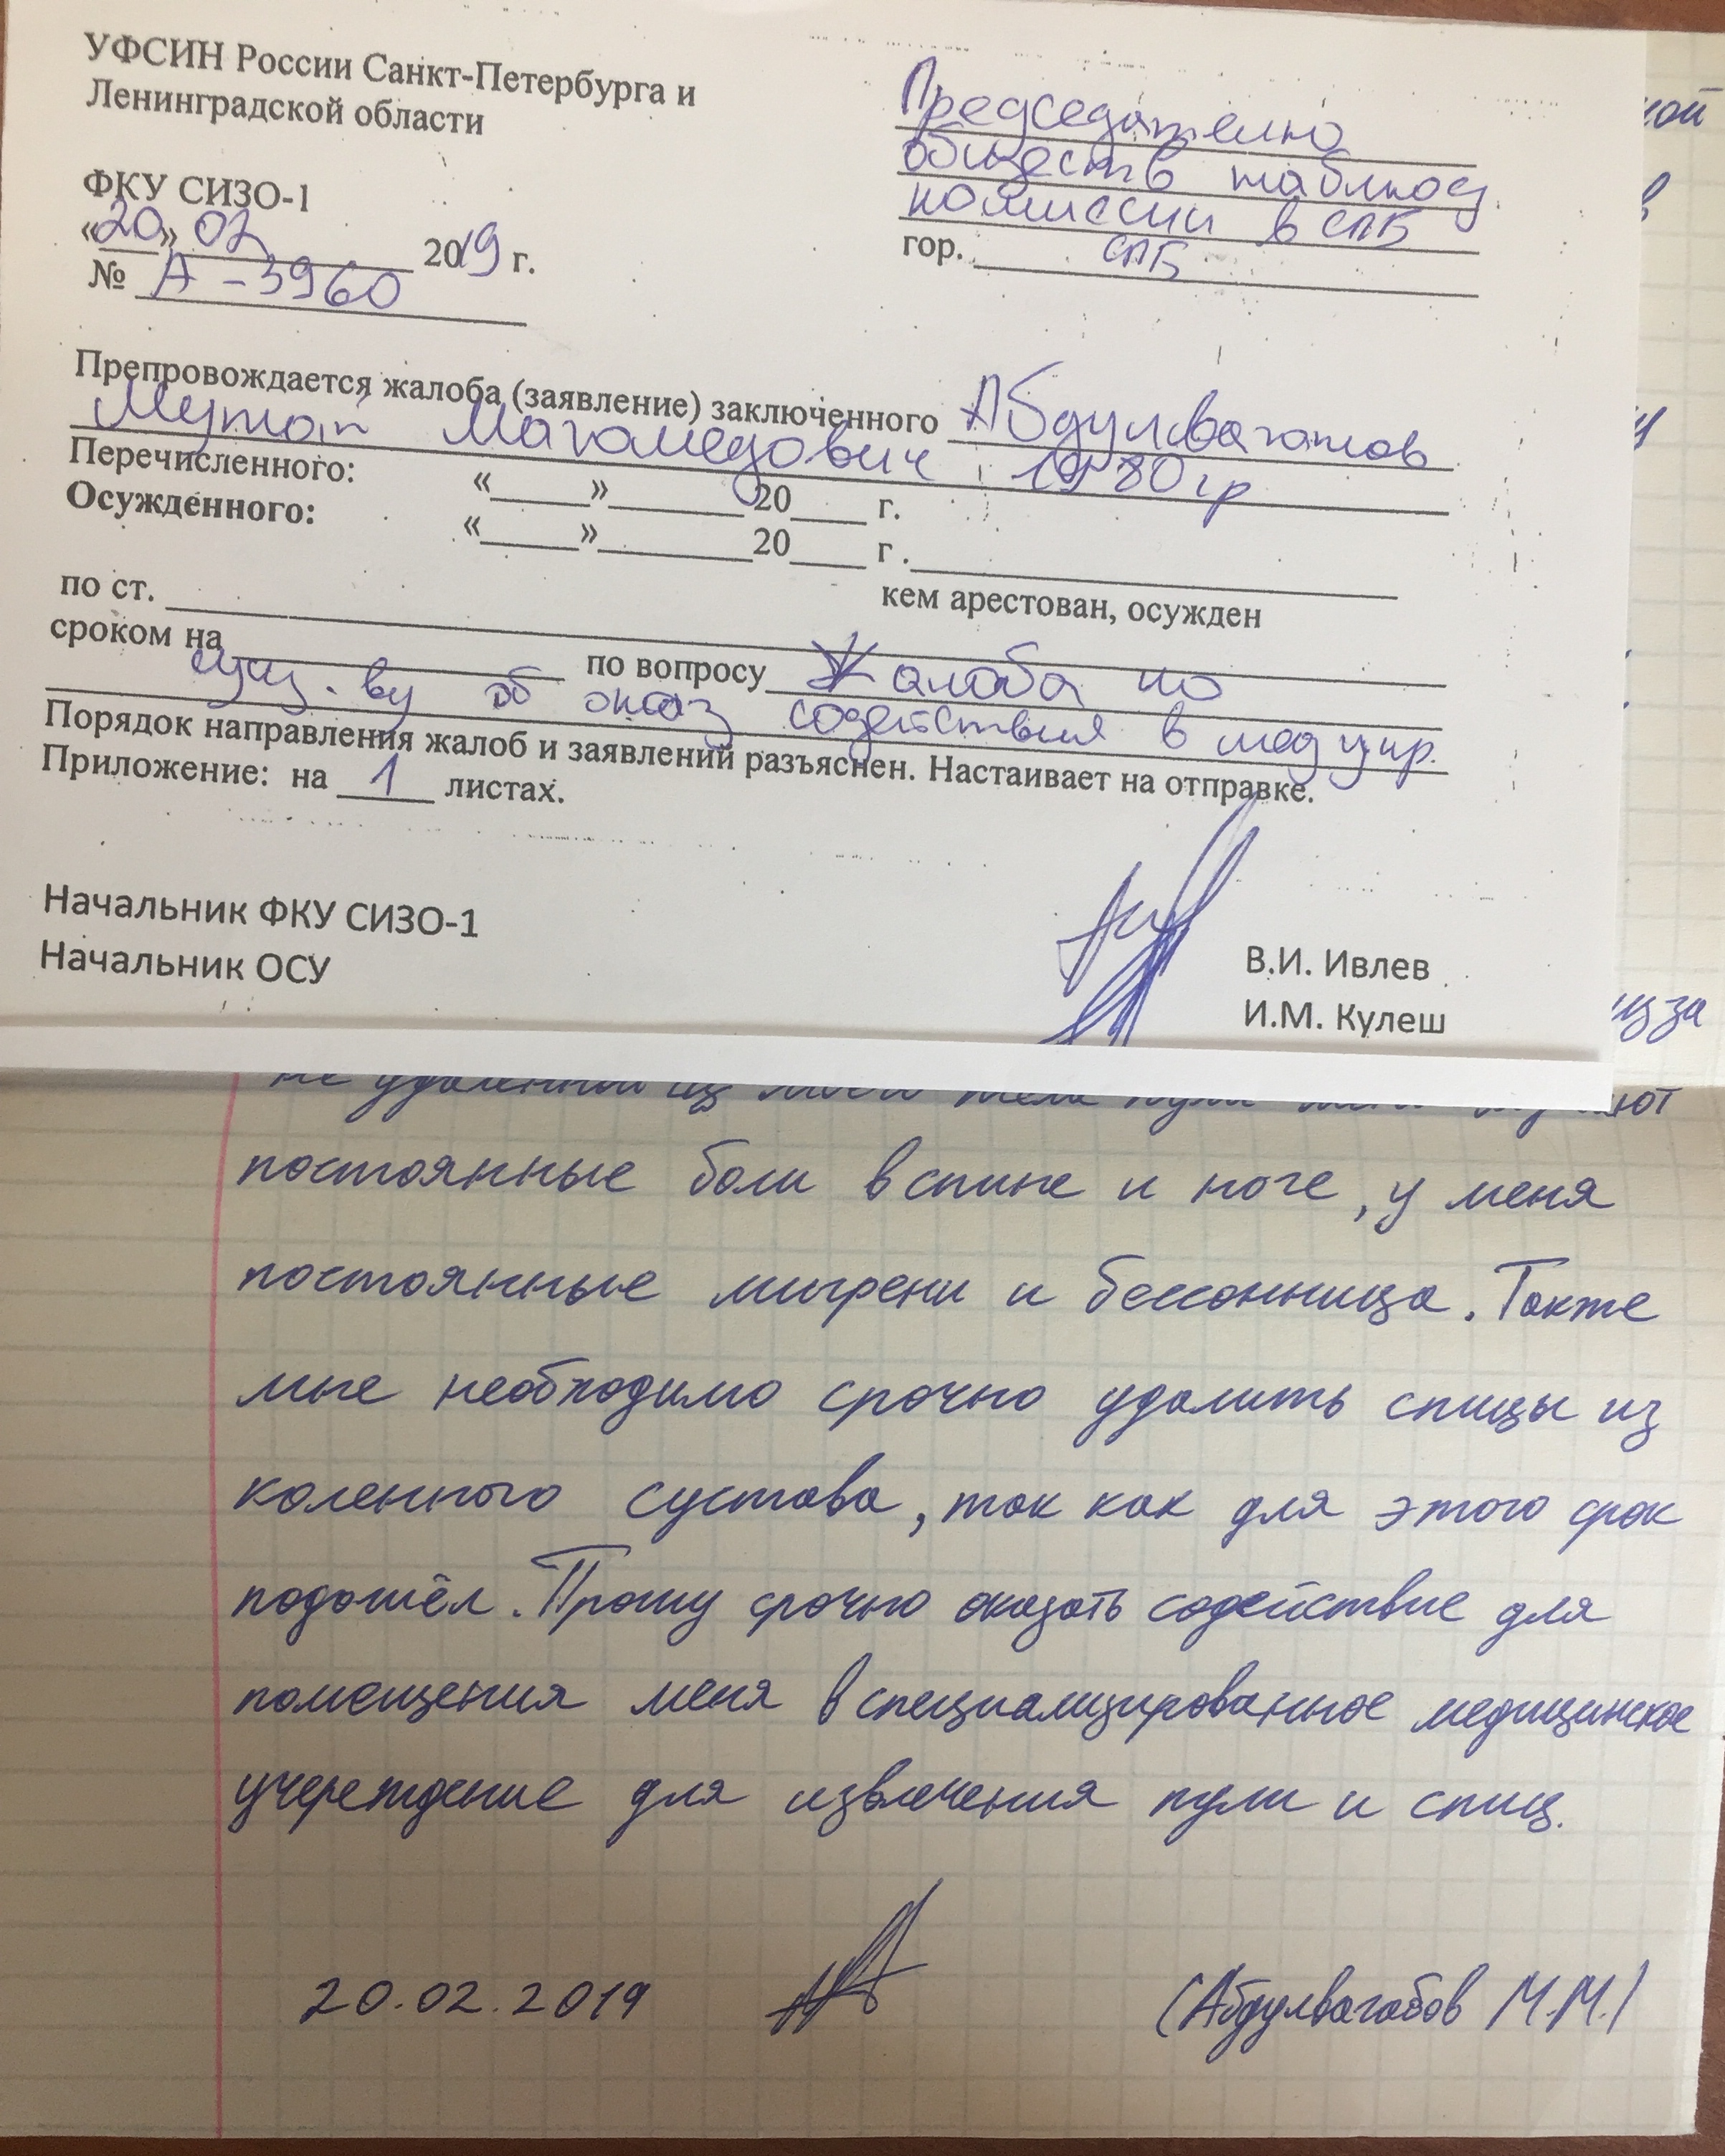 УФСИН России Санкт-Петербурга и
Ленинградской области
ФКУ СИЗО-1
«20» 02 2019 г.
№ А-3960
Председателю
обществ наблюд.
комиссии в СПБ
гор. СПБ
Препровождается жалоба (заявление) заключенного Абдулвагатов
Магомедович 1980 гр
Перечисленного: «____»________20____ г.
Осужденного: «____»________20____ г.
кем арестован, осужден
по ст.
сроком на по вопросу Жалоба по
об оказ содействия в мед
Порядок направления жалоб и заявлений разъяснен. Настаивает на отправке.
Приложение: на 1 листах.
Начальник ФКУ СИЗО-1 В.И. Ивлев
Начальник ОСУ И.М. Кулеш
ной
в
из за
не удалённой из моего тела пули меня
постоянные боли в спине и ноге, у меня
постоянные мигрени и бессонница. Также
мне необходимо срочно удалить спицы из
коленного сустава, так как для этого срок
подошёл. Прошу срочно оказать содействие для
помещения меня в специализированное медицинское
учереждение для извлечения пули и спиц.
20.02.2019 (Абдулвагабов М.М.)